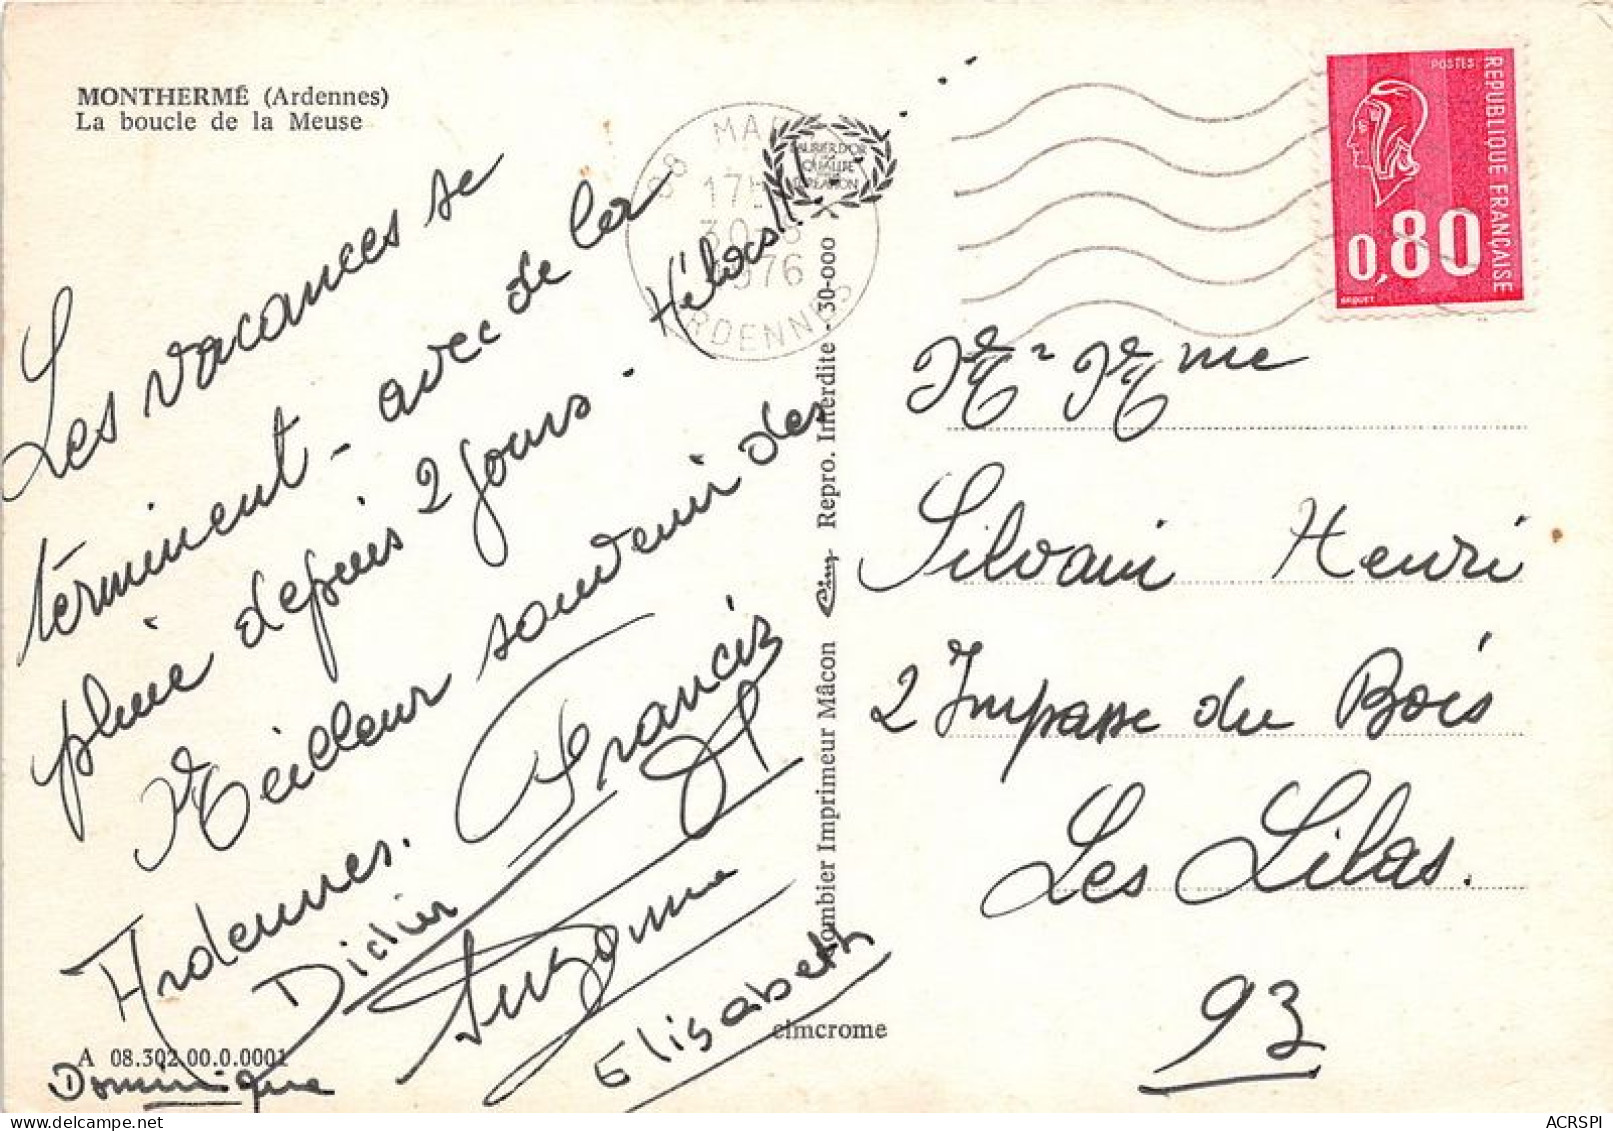 MONTHERMÉ (Ardennes)
La boucle de la Meuse
Les vacances se
terminent - avec de la
pluie depuis 2 jours. Hélas!!....
Meilleur souvenir des
Ardennes. Francis
Didier
Suzanne
Elisabeth
Dominique
A 08.302 00.0.0001
cimcrome
Combier Imprimeur Mâcon Cim Repro. Interdite - 30-000
08
17H
30-8
1976
ARDENNES
LAURIER D'OR
QUALITE
POSTES
REPUBLIQUE FRANÇAISE
0,80
BEQUET
Mr Mme
Silvain Henri
2 Impasse du Bois
Les Lilas.
93
ACRSPI